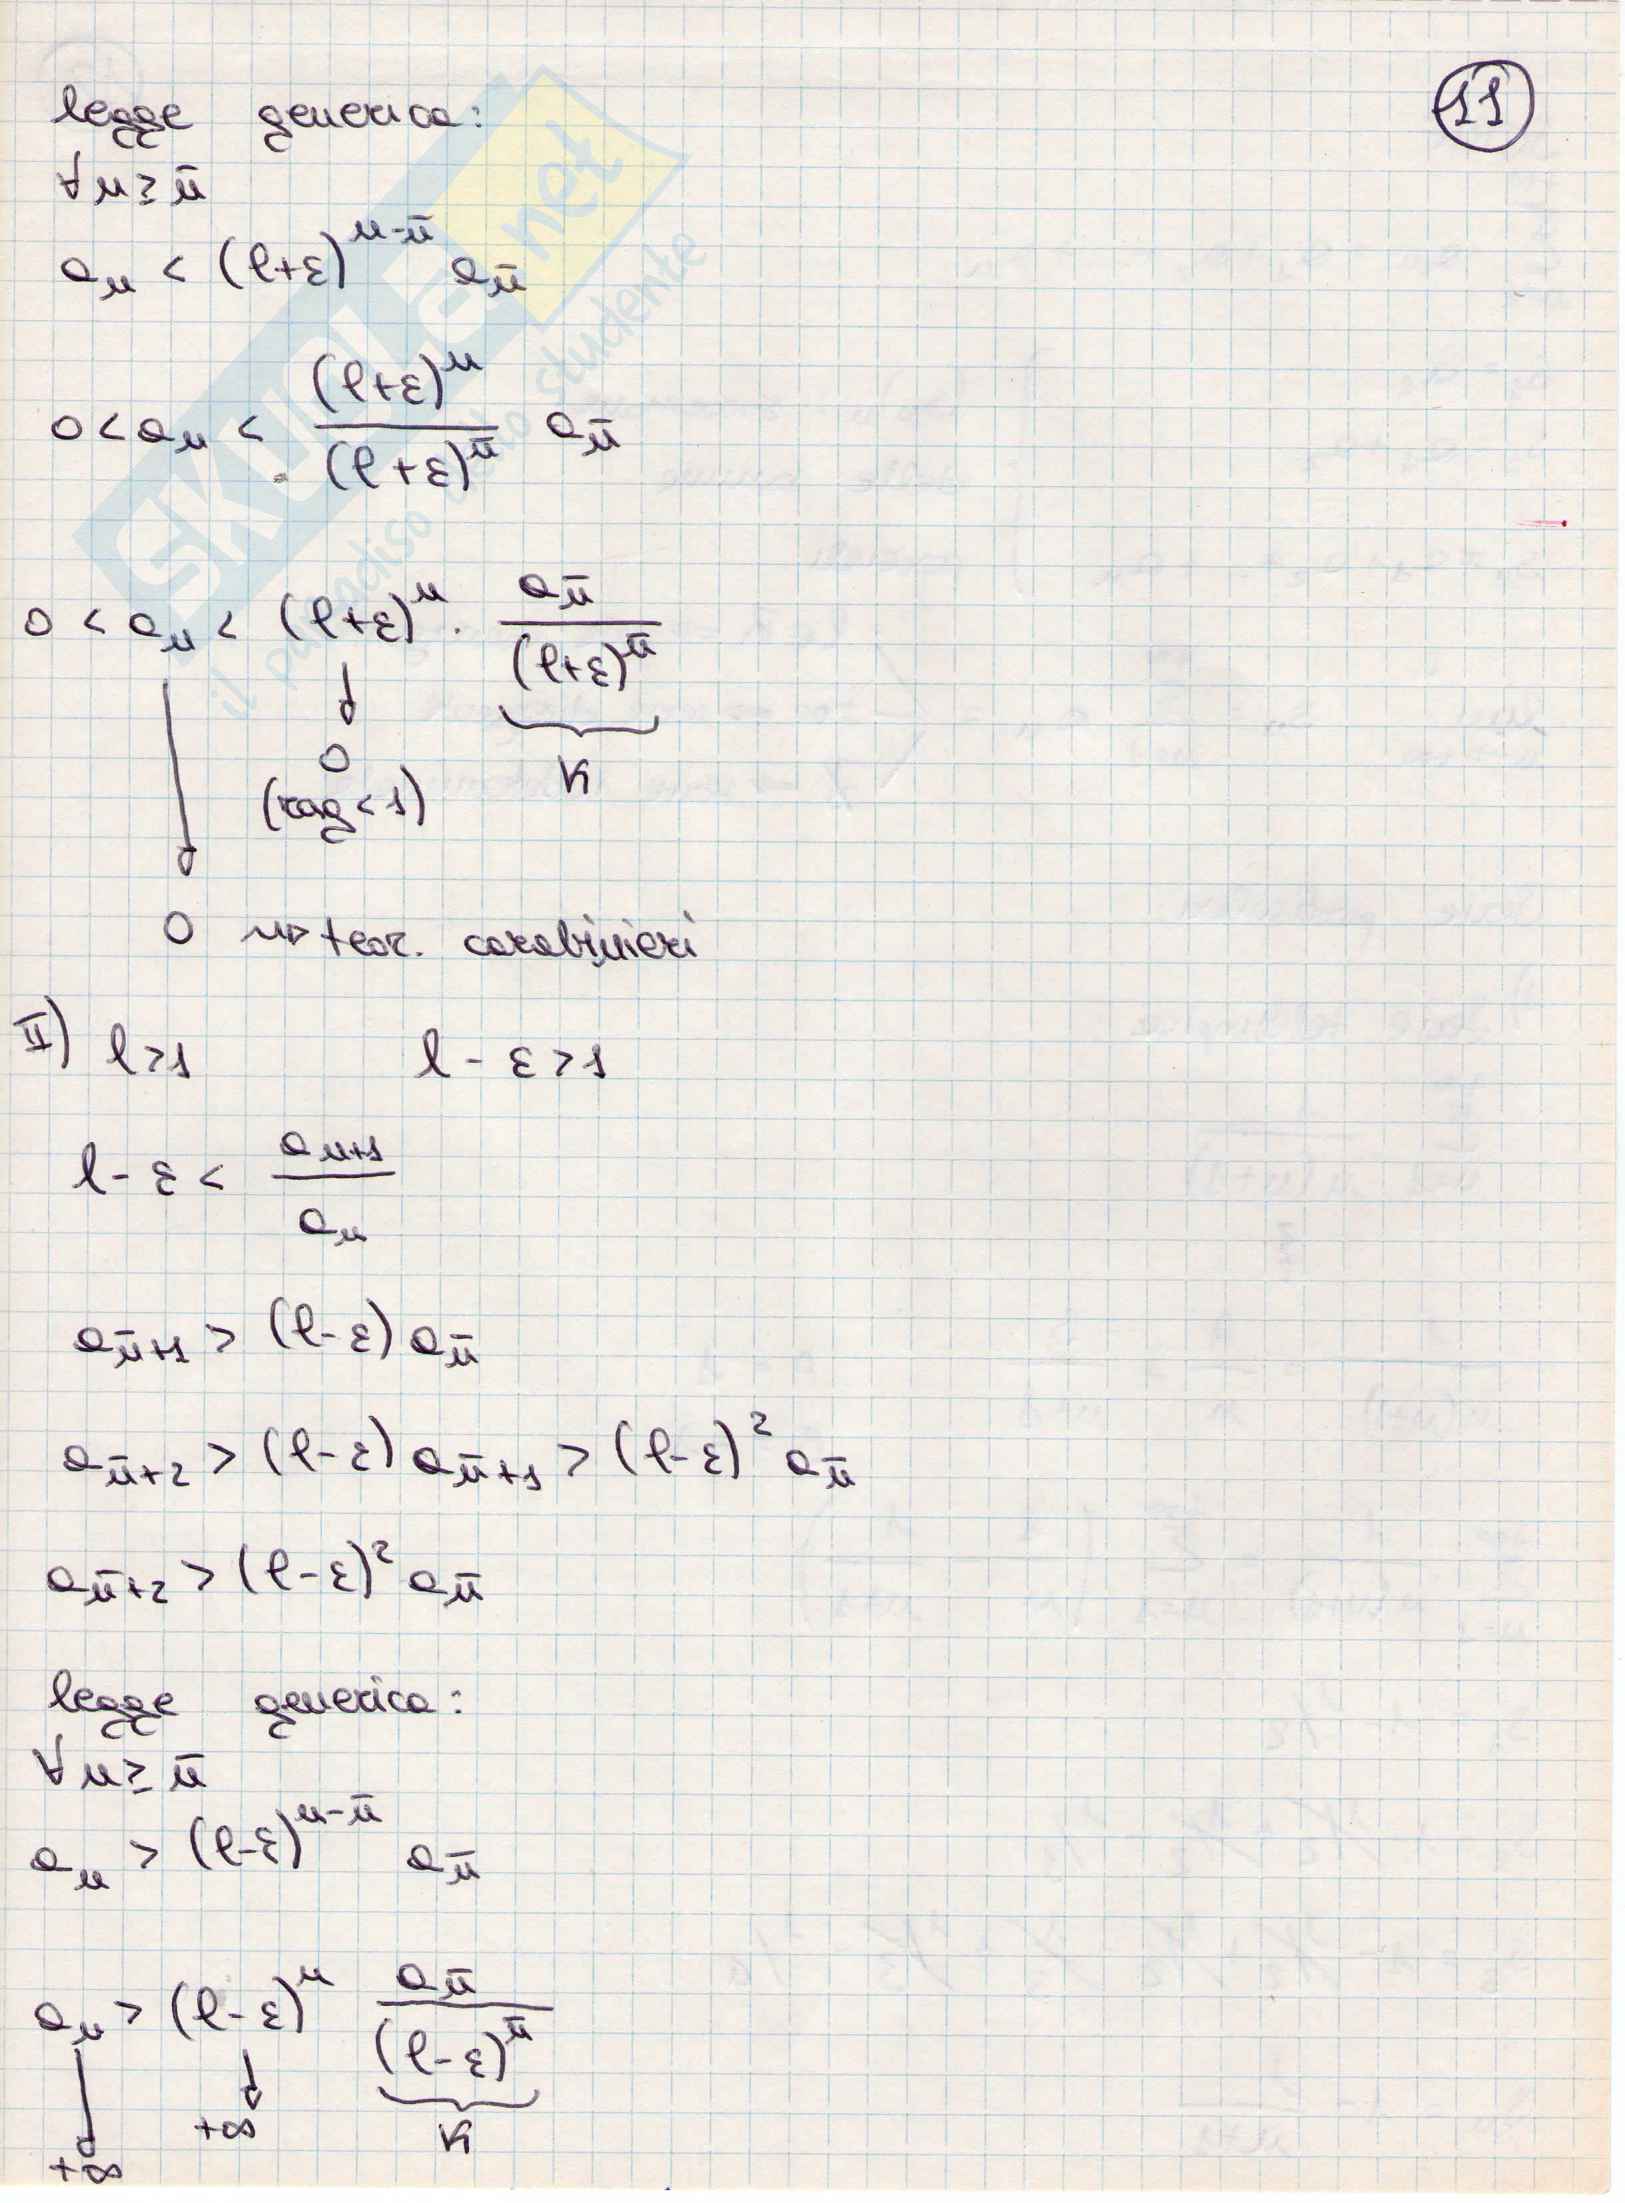 11
legge generica:
∀n ≥ n̄
aₙ < (l+ε)^(n-n̄) a_n̄
0 < aₙ < (l+ε)^n / (l+ε)^n̄ a_n̄
0 < aₙ < (l+ε)^n · a_n̄ / (l+ε)^n̄
↓ ↓ K
0
(rag < 1)
0 ⇝ teor. carabinieri
II) l > 1 l - ε > 1
l - ε < a_(n+1) / aₙ
a_(n̄+1) > (l-ε) a_n̄
a_(n̄+2) > (l-ε) a_(n̄+1) > (l-ε)² a_n̄
a_(n̄+2) > (l-ε)² a_n̄
legge generica:
∀n ≥ n̄
aₙ > (l-ε)^(n-n̄) a_n̄
aₙ > (l-ε)^n a_n̄ / (l-ε)^n̄
↓ ↓ K
+∞
+∞
SKUOLA.net
il paradiso dello studente